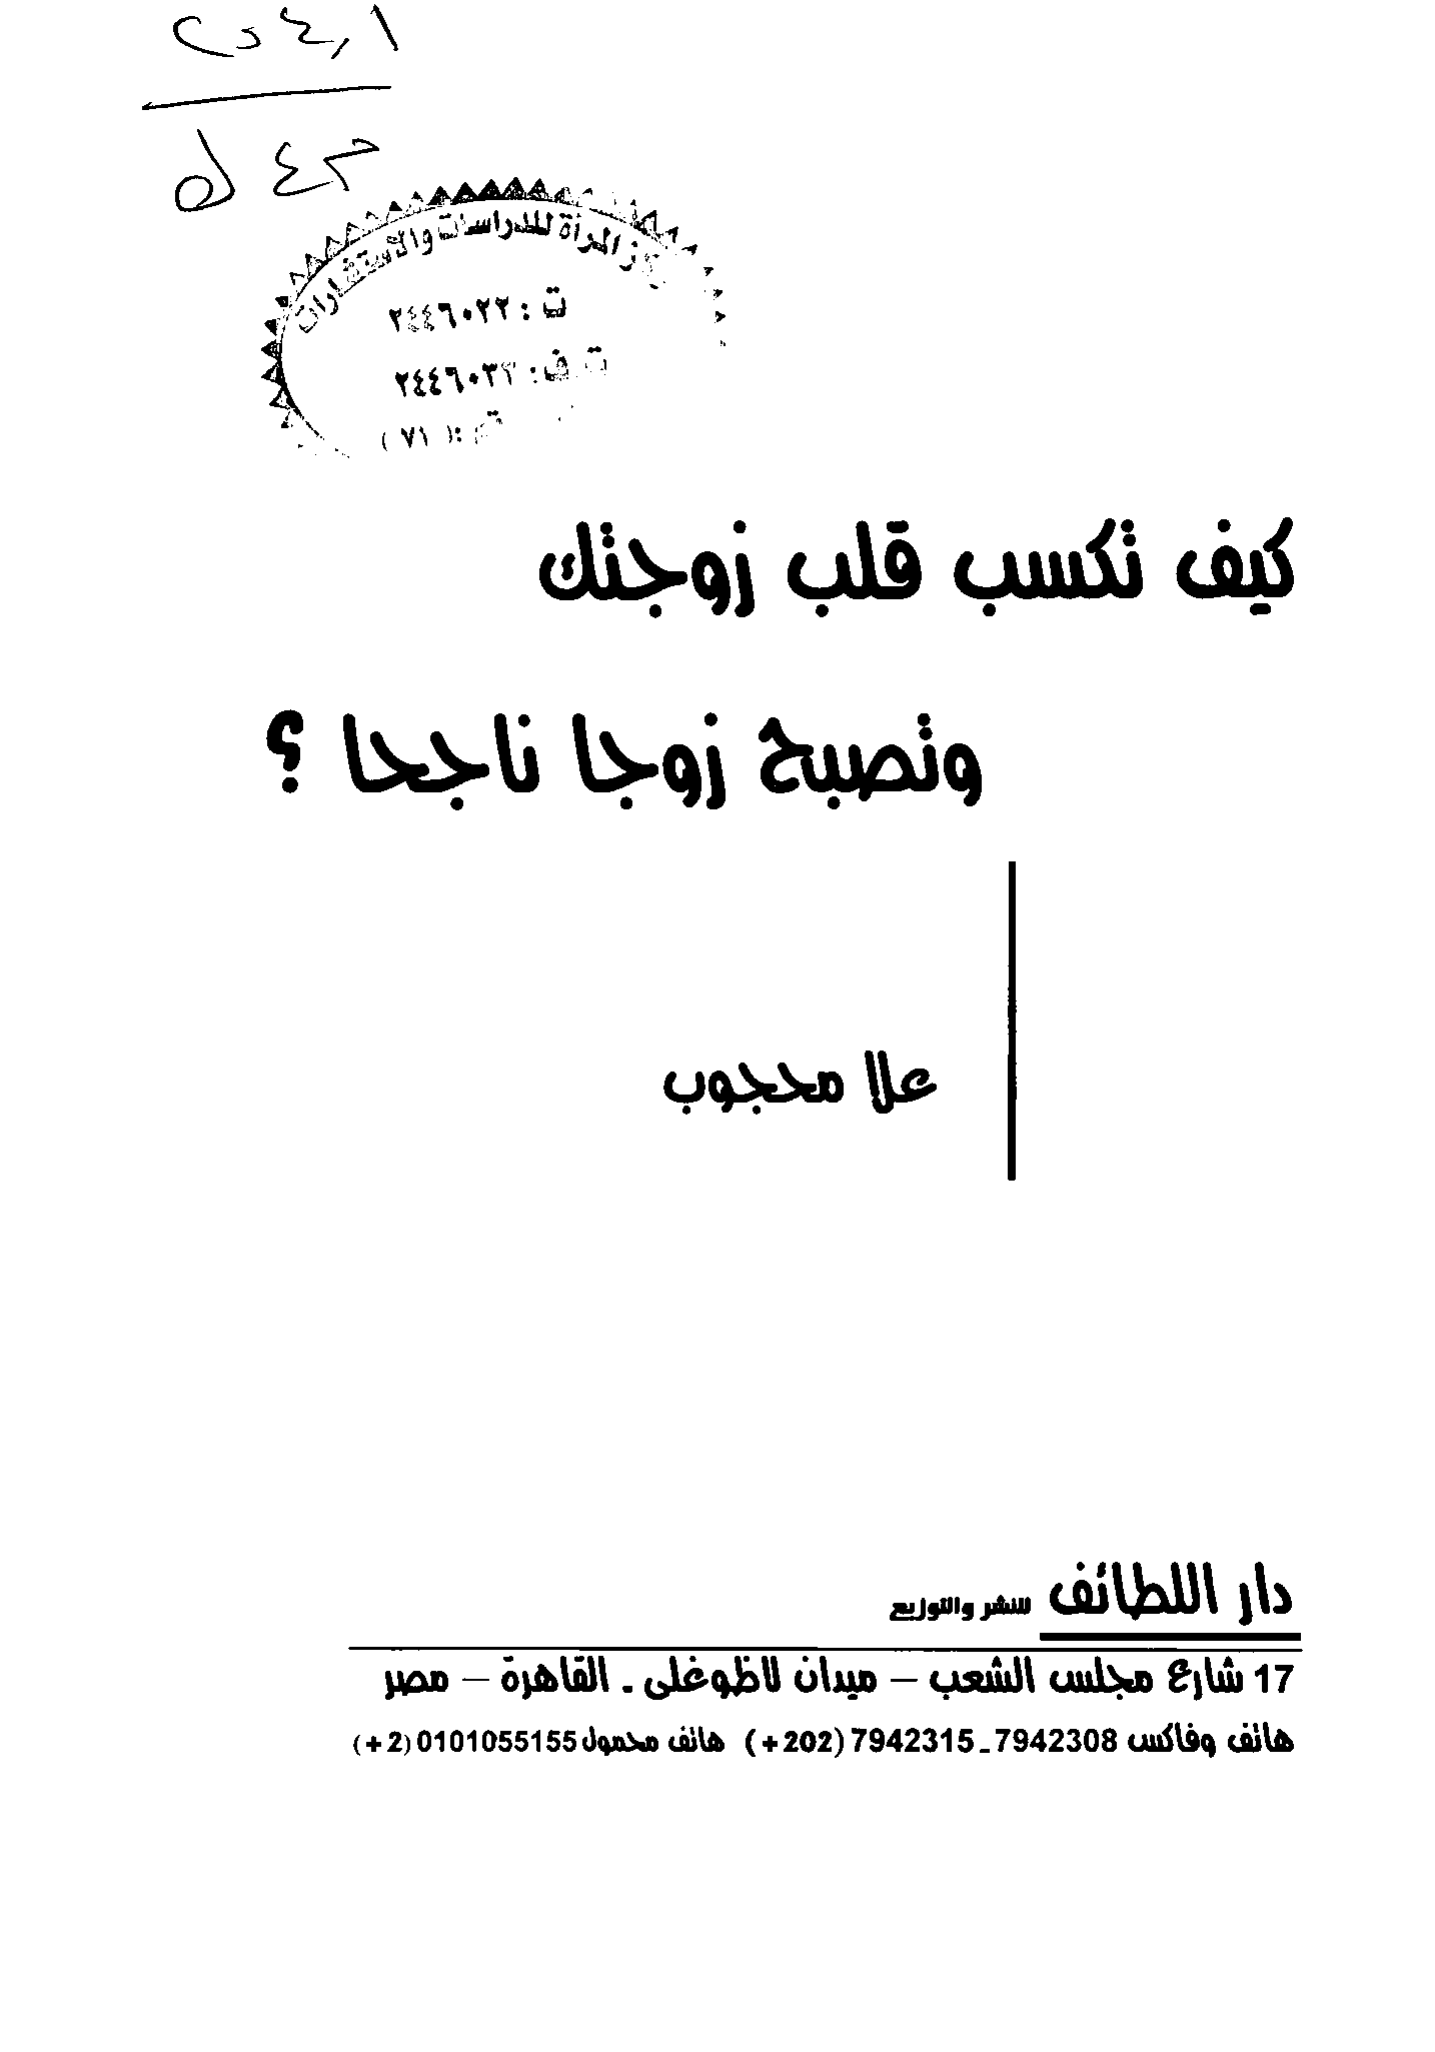 للدراسات والاستشارات
ت : ٢٤٤٦٠٢٢
ت ف : ٢٤٤٦٠٣٣
(٧١)
كيف تكسب قلب زوجتك
وتصبح زوجا ناجحا ؟
علا محجوب
دار اللطائف للنشر والتوزيع
17 شارع مجلس الشعب – ميدان لاظوغلى ـ القاهرة – مصر
هاتف وفاكس 7942308 ـ 7942315 (202+) هاتف محمول 0101055155 (2+)